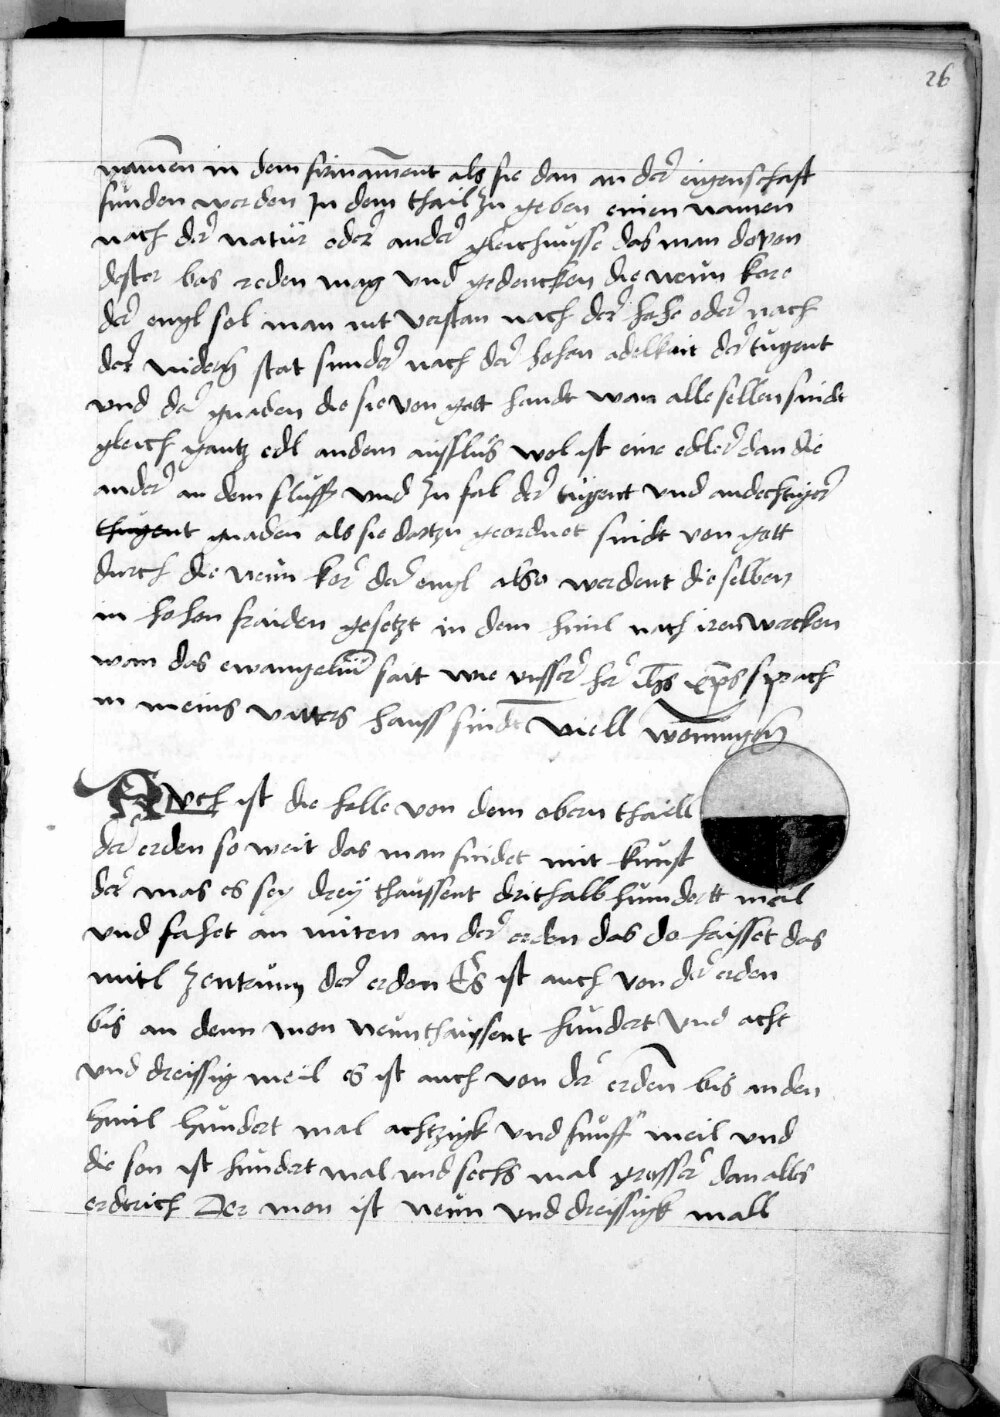 26
namen in dem firmament als sie dan an der eigenschaft
funden werden In dem thail zu geben einen namen
nach der natür oder ander gleichnüsse das man dovon
dester bas reden mag vnd gedencken die neün kore
der engl sol man nit verstan nach der hohe oder nach
der nidern stat sunder nach der hohen adelkait der tugent
vnd der gnaden die sie von gott handt wan alle sellen sindt
gleich gantz edl an dem ausflus wol ist eine edler dan die
ander an dem fluss vnd zu fal der tugent vnd andechtiger
thugent gnaden als sie dortzu geordnet sindt von gott
durch die neün kor der engl also werdent die selben
in hohen fraiden gesetzt in dem himl nach iren wercken
wan das ewangeliü sait wie vnsser her ihs xps sprach
in meins vatters hauss sindt viell wonungen
Avch ist die helle von dem obern thaill
der erden so weit das man findet mit kunst
der mas es sey dreÿ thaussent drithalb hundertt meil
vnd fahet an miten an der erden das do haisset das
mitl zentrum der erden Es ist auch von der erden
bis an denn mon neunthaussent hundert vnd acht
vnd dreissig meil es ist auch von der erden bis an den
himl hundert mal achtzigk vnd funff meil vnd
die son ist hundert mal vnd sechs mal grosser dan alles
erdtrich Der mon ist neun vnd dreissigk mall